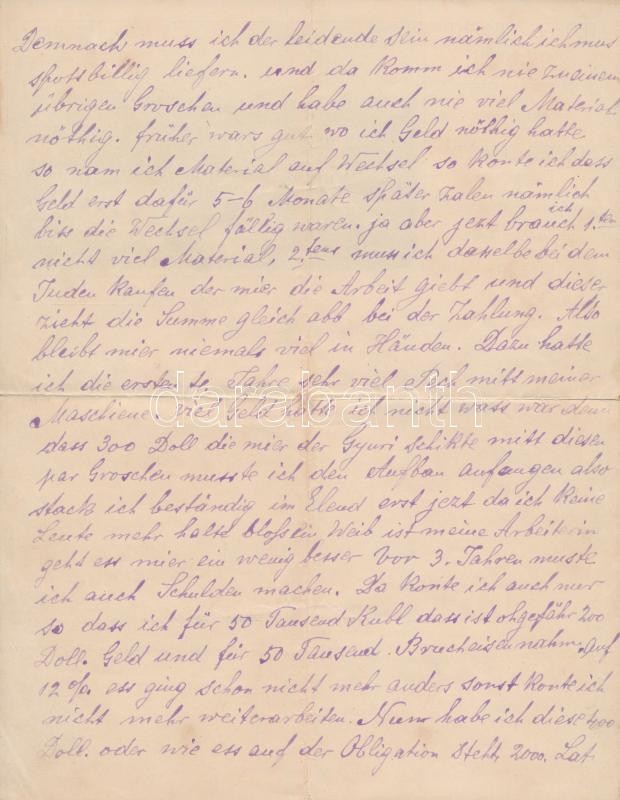 Demnach muss ich der leidende sein nämlich ich mus
spottbillig liefern. und da komm ich nie zu einem
übrigen Groschen und habe auch nie viel Material
nöthig. früher wars gut wo ich Geld nöthig hatte
so nam ich Material auf Wechsel so konte ich dass
Geld erst dafür 5-6 Monate später zalen nämlich
biss die Wechsel fällig waren. ja aber jezt brauch ich 1.tens
nicht viel Material, 2.tens muss ich dasselbe bei dem
Juden kaufen der mier die Arbeit giebt und dieser
zicht die Summe gleich abb bei der Zahlung. Also
bleibt mier niemals viel in Händen. Dazu hatte
ich die ersten Jahre sehr viel Pech mitt meiner
Maschiene. viel Geld hatte ich nicht wass war denn
dass 300 Doll die mier der Gyuri schikte mitt diesen
par Groschen musste ich den Aufbau anfangen also
stack ich beständig im Elend erst jezt da ich keine
Leute mehr halte bloss ein Weib ist meine Arbeiterin
geht ess mier ein wenig besser Vor 3. Jahren muste
ich auch Schulden machen. Da konte ich auch nur
so dass ich für 50 Tausend Rubl dass ist ohgefähr 200
Doll. Geld und für 50 Tausend. Brucheisen nahm. Auf
12% ess ging schon nicht mehr anders sonst konte ich
nicht mehr weiterarbeiten. Nunn habe ich diese 400
Doll. oder wie ess auf der Obligation steht, 2000. Lat
darabanth